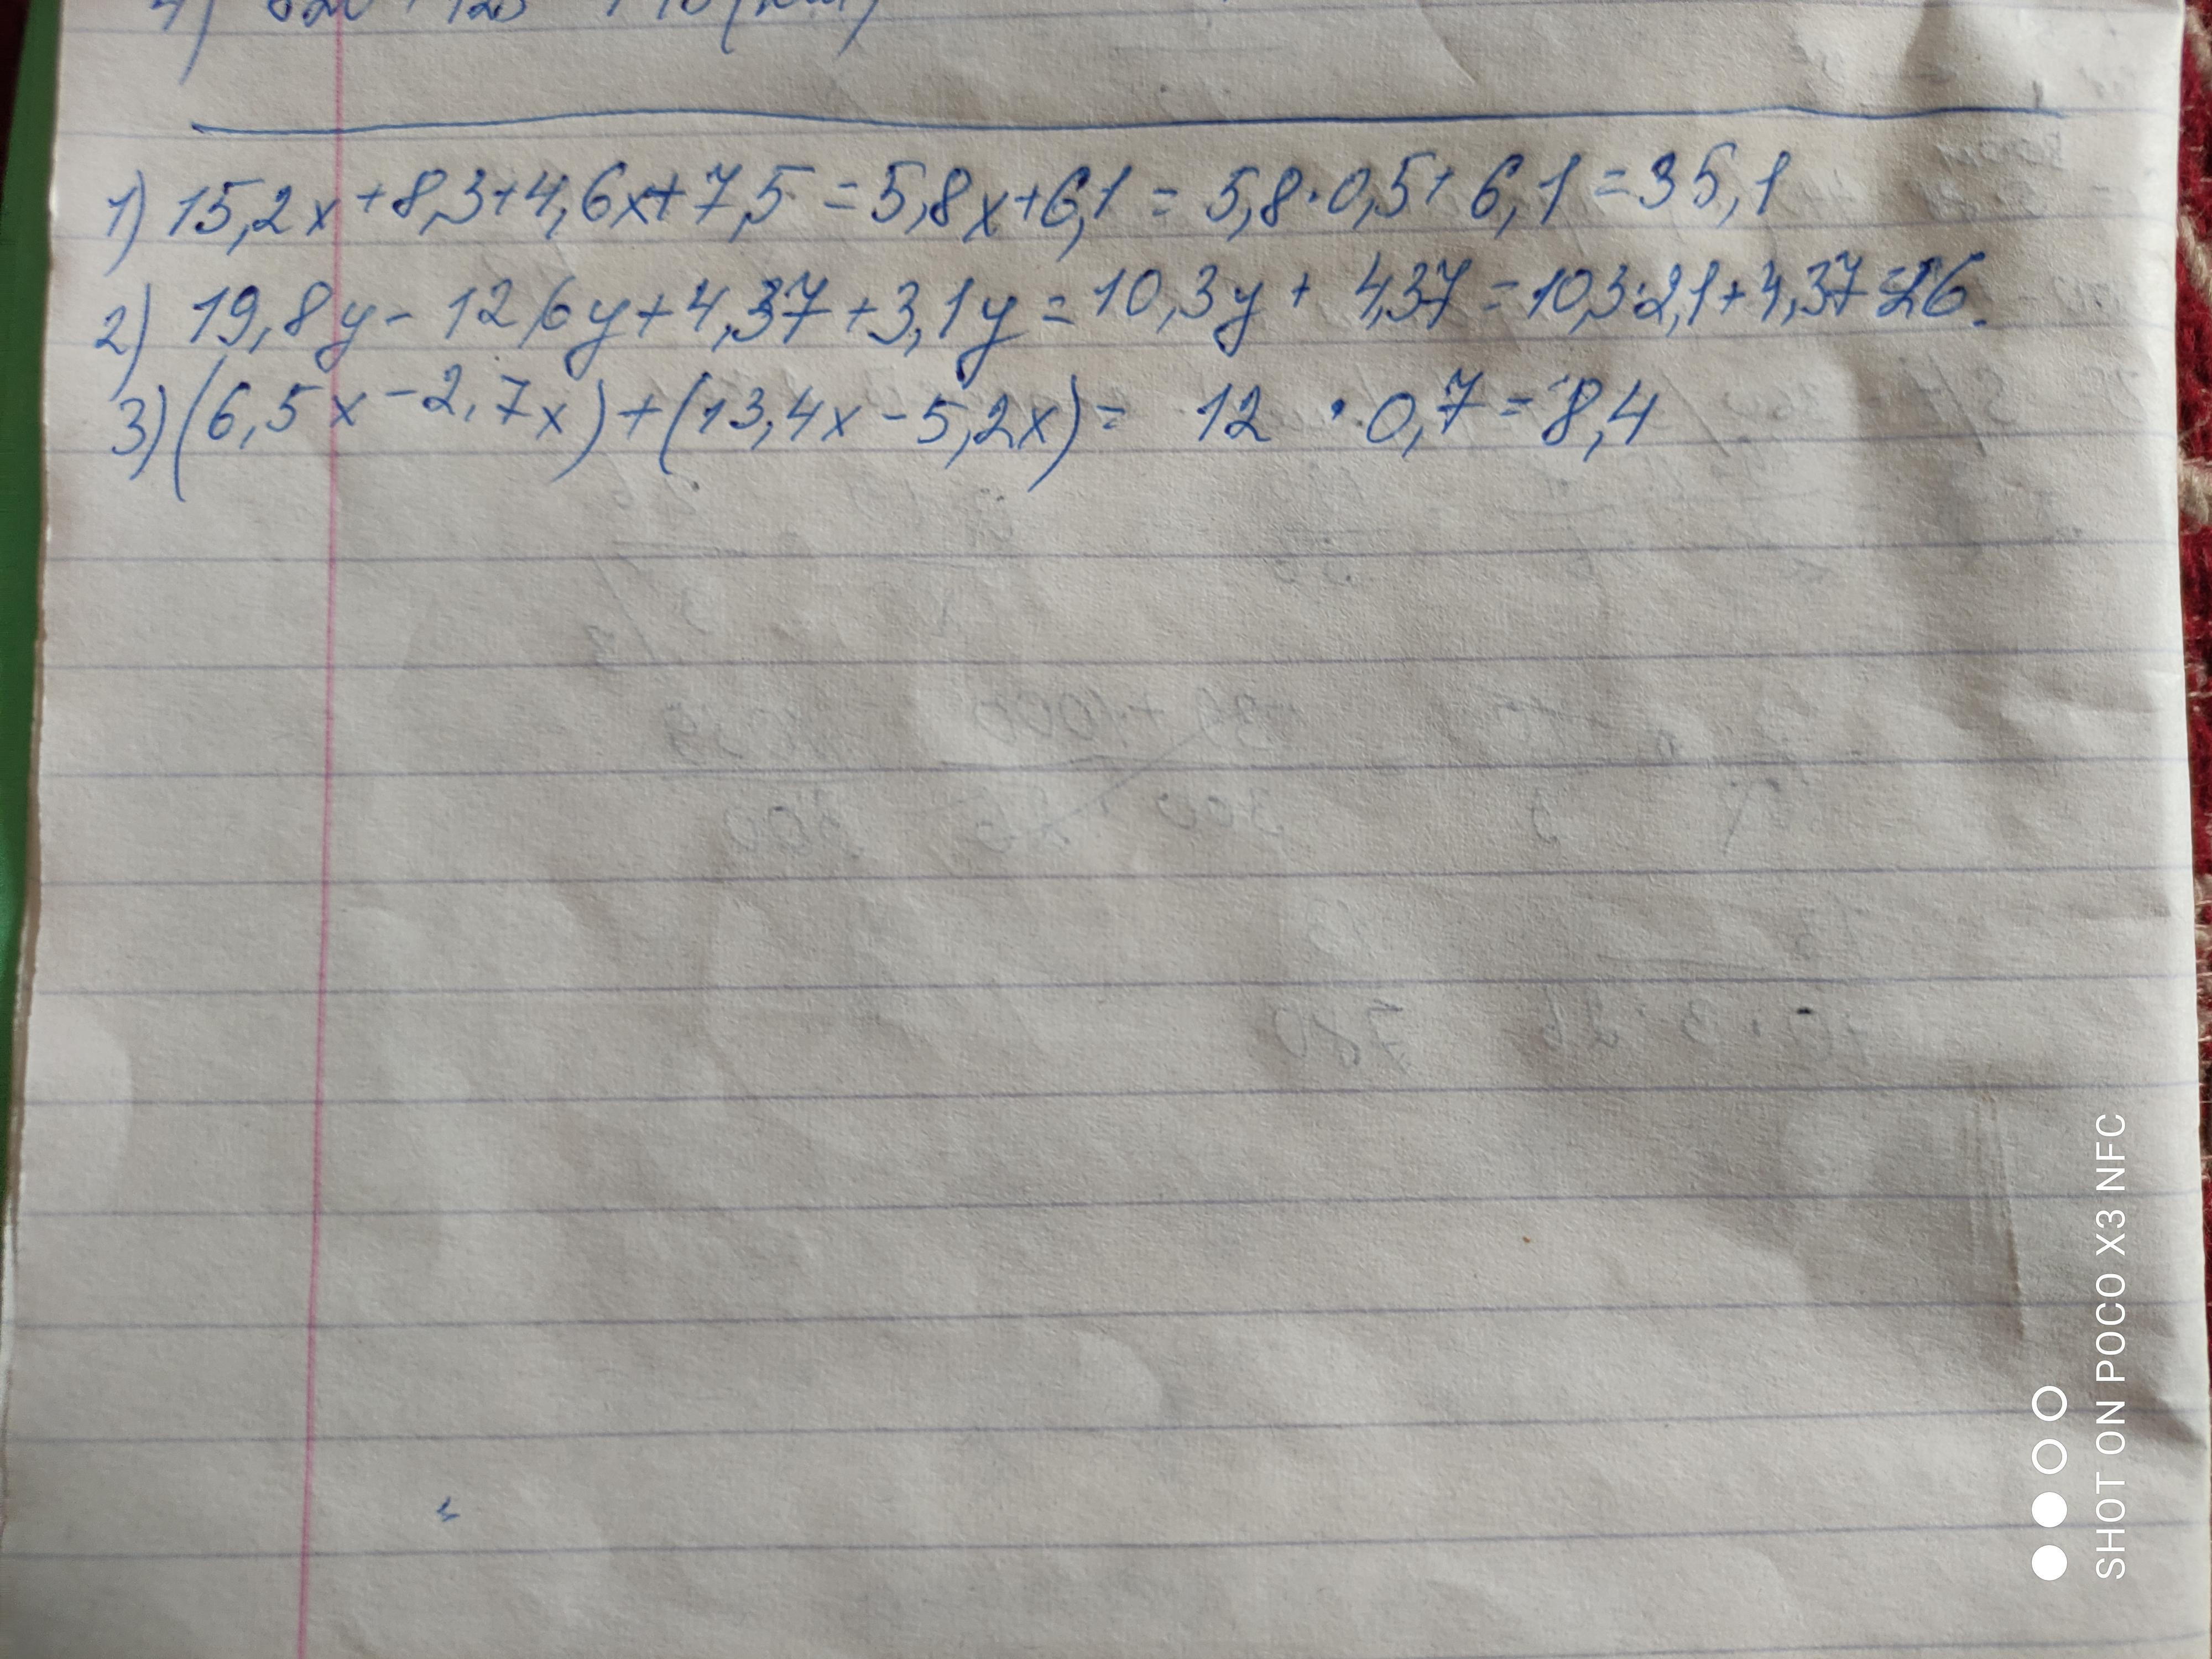 1) 15,2x+8,3+4,6x+7,5=5,8x+6,1= 5,8·0,5+6,1=35,1
2) 19,8y-12,6y+4,37+3,1y=10,3y+4,37=10,3·2,1+4,37=26.
3) (6,5x-2,7x)+(13,4x-5,2x)= 12·0,7=8,4
SHOT ON POCO X3 NFC